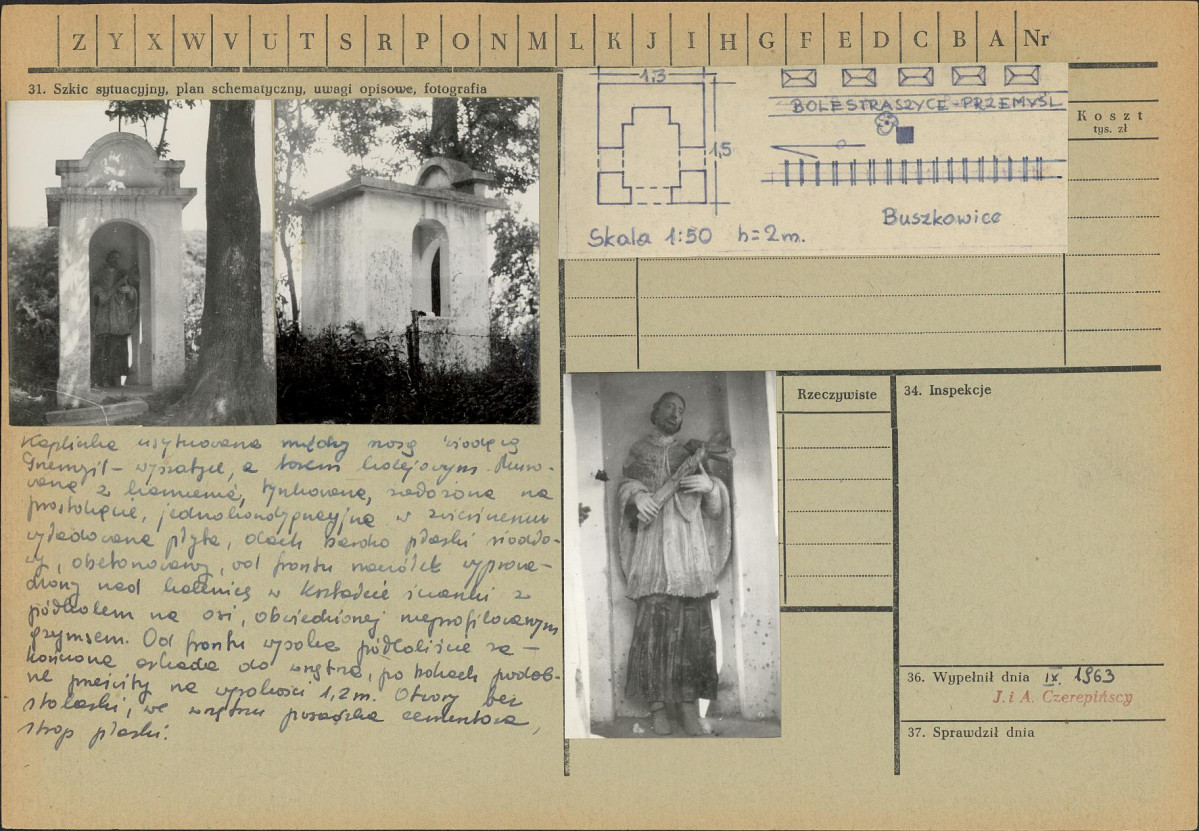 Z Y X W V U T S R P O N M L K J I H G F E D C B A Nr
31. Szkic sytuacyjny, plan schematyczny, uwagi opisowe, fotografia
1,3
1,5
Skala 1:50 h=2m.
BOLESTRASZYCE-PRZEMYŚL
Buszkowice
Koszt
tys. zł
Kapliczka usytuowana między szosą wiodącą
a torem kolejowym. Muro-
wana z kamienia, tynkowana, założona na
prostokącie, jednokondygnacyjna, w zwieńczeniu
płyta, dach bardzo płaski siodło-
wy, obetonowany, od frontu wyprowa-
dzony nad kalenicę w kształcie ścianki z
półkolem na osi, obwiedzionej nieprofilowanym
gzymsem. Od frontu wysoka półkoliście za-
kończona arkada do wnętrza, po bokach podob-
ne prześwity na wysokości 1,2m. Otwory bez
stolarki, we wnętrzu posadzka cementowa,
strop płaski.
Rzeczywiste
34. Inspekcje
36. Wypełnił dnia IX. 1963
J. i A. Czerepińscy
37. Sprawdził dnia